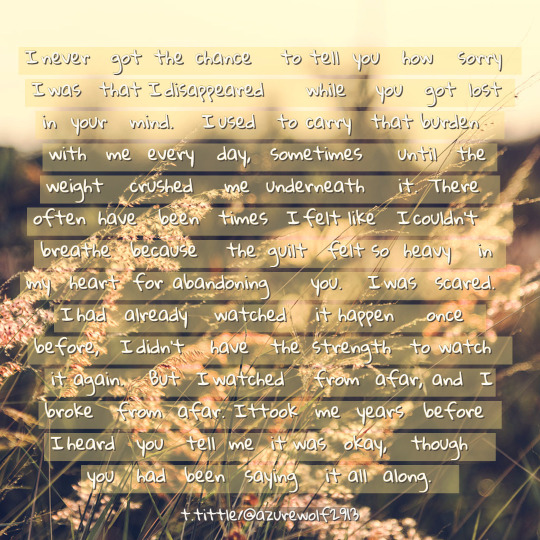 I never got the chance to tell you how sorry
I was that I disappeared while you got lost
in your mind. I used to carry that burden
with me every day, sometimes until the
weight crushed me underneath it. There
often have been times I felt like I couldn't
breathe because the guilt felt so heavy in
my heart for abandoning you. I was scared.
I had already watched it happen once
before, I didn't have the strength to watch
it again. But I watched from afar, and I
broke from afar. It took me years before
I heard you tell me it was okay, though
you had been saying it all along.
t.tittle/@azurewolf2913